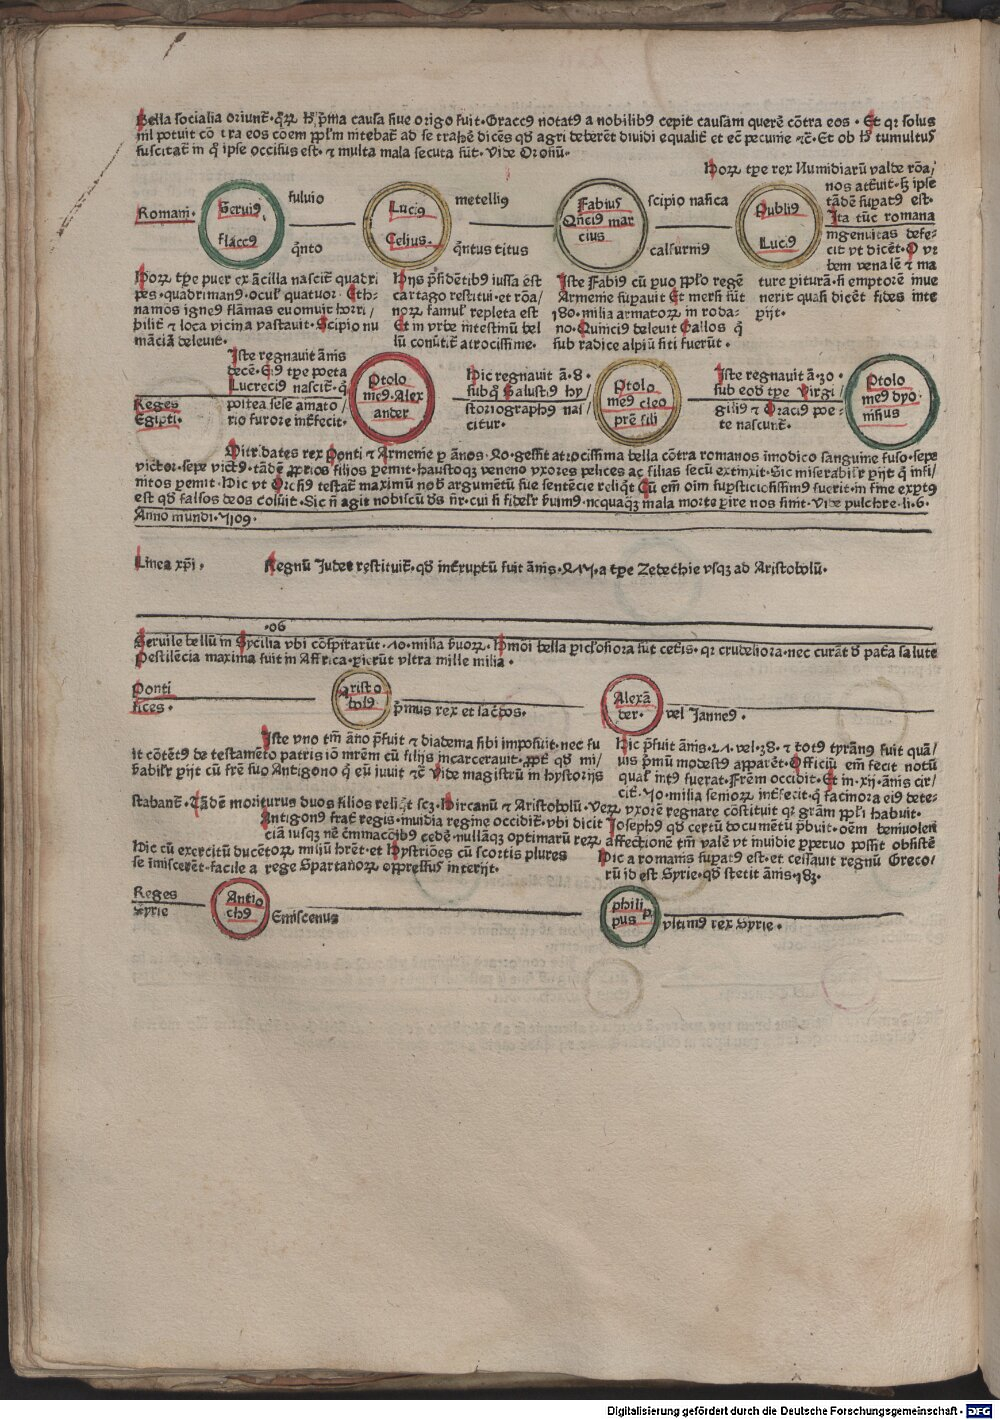 Bella socialia oriunt᷑. qr̄ꝝ h̄ p̄ma causa siue origo fuit. Gracc9 notat9 a nobilib9 cepit causam querē cōtra eos. Et qꝛ solus
nil potuit cō tra eos cōem ppl̄m nitebat᷑ ad se trahē dicēs qd̄ agri deberent diuidi equalit᷑ et ec̄ pecunie ꝛc̄. Et ob h̄ tumult9
suscitat᷑ in q̄ ipse occisus est. ⁊ multa mala secuta sūt. Vide Orosiū.
Hoꝝ tꝑe rex Numidiarū valde rōa/
nos att᷑uit. sꝫ ipse
tādē suꝑat9 est.
Ita tūc romana
ingenuitas defe-
cit vt dicēt. O vr
bem venalē ⁊ ma
ture ꝑiturā. si emptorē inue
nerit quasi dicēt fides inte
ꝑijt.
Romani.
Serui9
flacc9
fuluio
q̄nto
Luci9
Celius.
metelli9
q̄ntus titus
Fabius
Qn̄ci9 mar
cius
scipio nasica
calfurni9
Publi9
Luci9
Hoꝝ tꝑe puer ex ācilla nascit᷑ quadri
pes. quadriman9. ocul᷑ quatuor. Eth-
namos igneꝰ flāmas euomuit horri/
bilit᷑ ⁊ loca vicina vastauit. Scipio nu
māciā deleuit.
Hijs p̄sidētib9 iussa est
cartago restitui. et rōa/
noꝝ famul᷑ repleta est
Et in vrbe intestinū bel
lū conūtit᷑ atrocissime.
Iste Fabi9 cū ꝑuo ppl̄o regē
Armenie suꝑauit Et mersi sūt
180. milia armatoꝝ in roda-
no. Quinci9 deleuit Gallos q̄
sub radice alpiū siti fuerūt.
Iste regnauit ānis
decē. Ei9 tꝑe poeta
Lucreci9 nascit᷑. q̄
postea sese amato/
rio furore int᷑fecit.
Reges
Egipti.
Ptolo
me9. Alex
ander
Hic regnauit ā. 8.
subq̄ Salusti9 hy/
storiograph9 nas/
citur.
Ptolo
me9 cleo
pr̄e fili
Iste regnauit ā. 30.
sub eod̄ tꝑe Virgi/
gili9 ⁊ Oraci9 poe-
te nascunt᷑.
Ptolo
me9 dyo
nisius
Mitridates rex Ponti ⁊ Armenie ꝑ ānos. 40. gessit atrocissima bella cōtra romanos imodico sanguine fuso. sepe
victor. sepe vict9. tādē ꝓprios filios ꝑemit. haustoqꝫ veneno vxores pelices ac filias secū extinxit. Sic miserabil᷑r ꝑijt q̄ infi/
nitos ꝑemit. Hic vt Orosi9 testat᷑ maximū nob̄ argumētū sue sentēcie reliq̄t Cū em̄ oīm suꝑsticiosissim9 fuerit. in fine exꝑt9
est qd̄ falsos deos coluit. Sic n̄ agit nobiscū ds̄ n̄r. cui si fidel᷑r ẜuim9. nequaqꝫ mala morte ꝑire nos sinit. Vide pulchre. li. 6.
Anno mundi. 5109.
Linea xp̄i.
Regnū Iudee restituit᷑. qd̄ int᷑ruptū fuit ānis. 475. a tꝑe Zedechie vsqꝫ ad Aristobolū.
.06
Seruile bellū in Sycilia vbi cōspirarūt. 70. milia ẜuoꝝ. Hmōi bella piclōsiora sūt cet᷑is. qꝛ crudeliora. nec curāt d̄ pat᷑a salute
Pestilēcia maxima fuit in Affrica. ꝑierūt vltra mille milia.
Ponti
fices.
Aristo
bol9
p̄mus rex et sac᷑dos.
Alexā
der.
vel Janne9.
Iste vno tm̄ āno p̄fuit ⁊ diadema sibi imposuit. nec fu
it cōtēt9 de testamēto patris iō mr̄em cū filijs incarcerauit. ꝓpt᷑ qd̄ mi/
ẜabil᷑r ꝑijt cū fr̄e suo Antigono q̄ eū iuuit ⁊c̄ Vide magistrū in hystorijs
Hic p̄fuit ānis. 27. vel. 38. ⁊ tot9 tyrān9 fuit quā/
uis p̄mū modest9 apparēt. Officiū em̄ fecit notū
qual᷑ int9 fuerat. Fr̄em occidit. Et in. xij. ānis cir/
cit᷑. 50. milia senioꝝ int᷑fecit. q̄ facinora ei9 dete-
stabant᷑. Tādē moriturus duos filios reliq̄t scꝫ. Hircanū ⁊ Aristobolū. Veꝝ vxorē regnare cōstituit qꝛ gr̄am ppl̄i habuit.
Antigon9 frat᷑ regis. inuidia regine occidit᷑. vbi dicit Joseph9 qd̄ certū documētū p̄buit. oēm beniuolen
ciā iusqꝫ ne᷑ c᷑mmacōib9 cedē. nullāqꝫ optimarū reꝝ affectionē tm̄ valē vt inuidie ꝑperuo possit obsistē
Hic cū exercitū ducētoꝝ miliū hr̄et. et Hystriōes cū scortis plures
se īmiscerēt. facile a rege Spartanoꝝ oppressus interijt.
Hic a romanis suꝑat9 est. et cessauit regnū Greco/
rū id est Syrie. qd̄ stetit ānis. 183.
Reges
Syrie
Antio
ch9
Emiscenus
phili
pus
vltim9 rex Syrie.
Digitalisierung gefördert durch die Deutsche Forschungsgemeinschaft - DFG